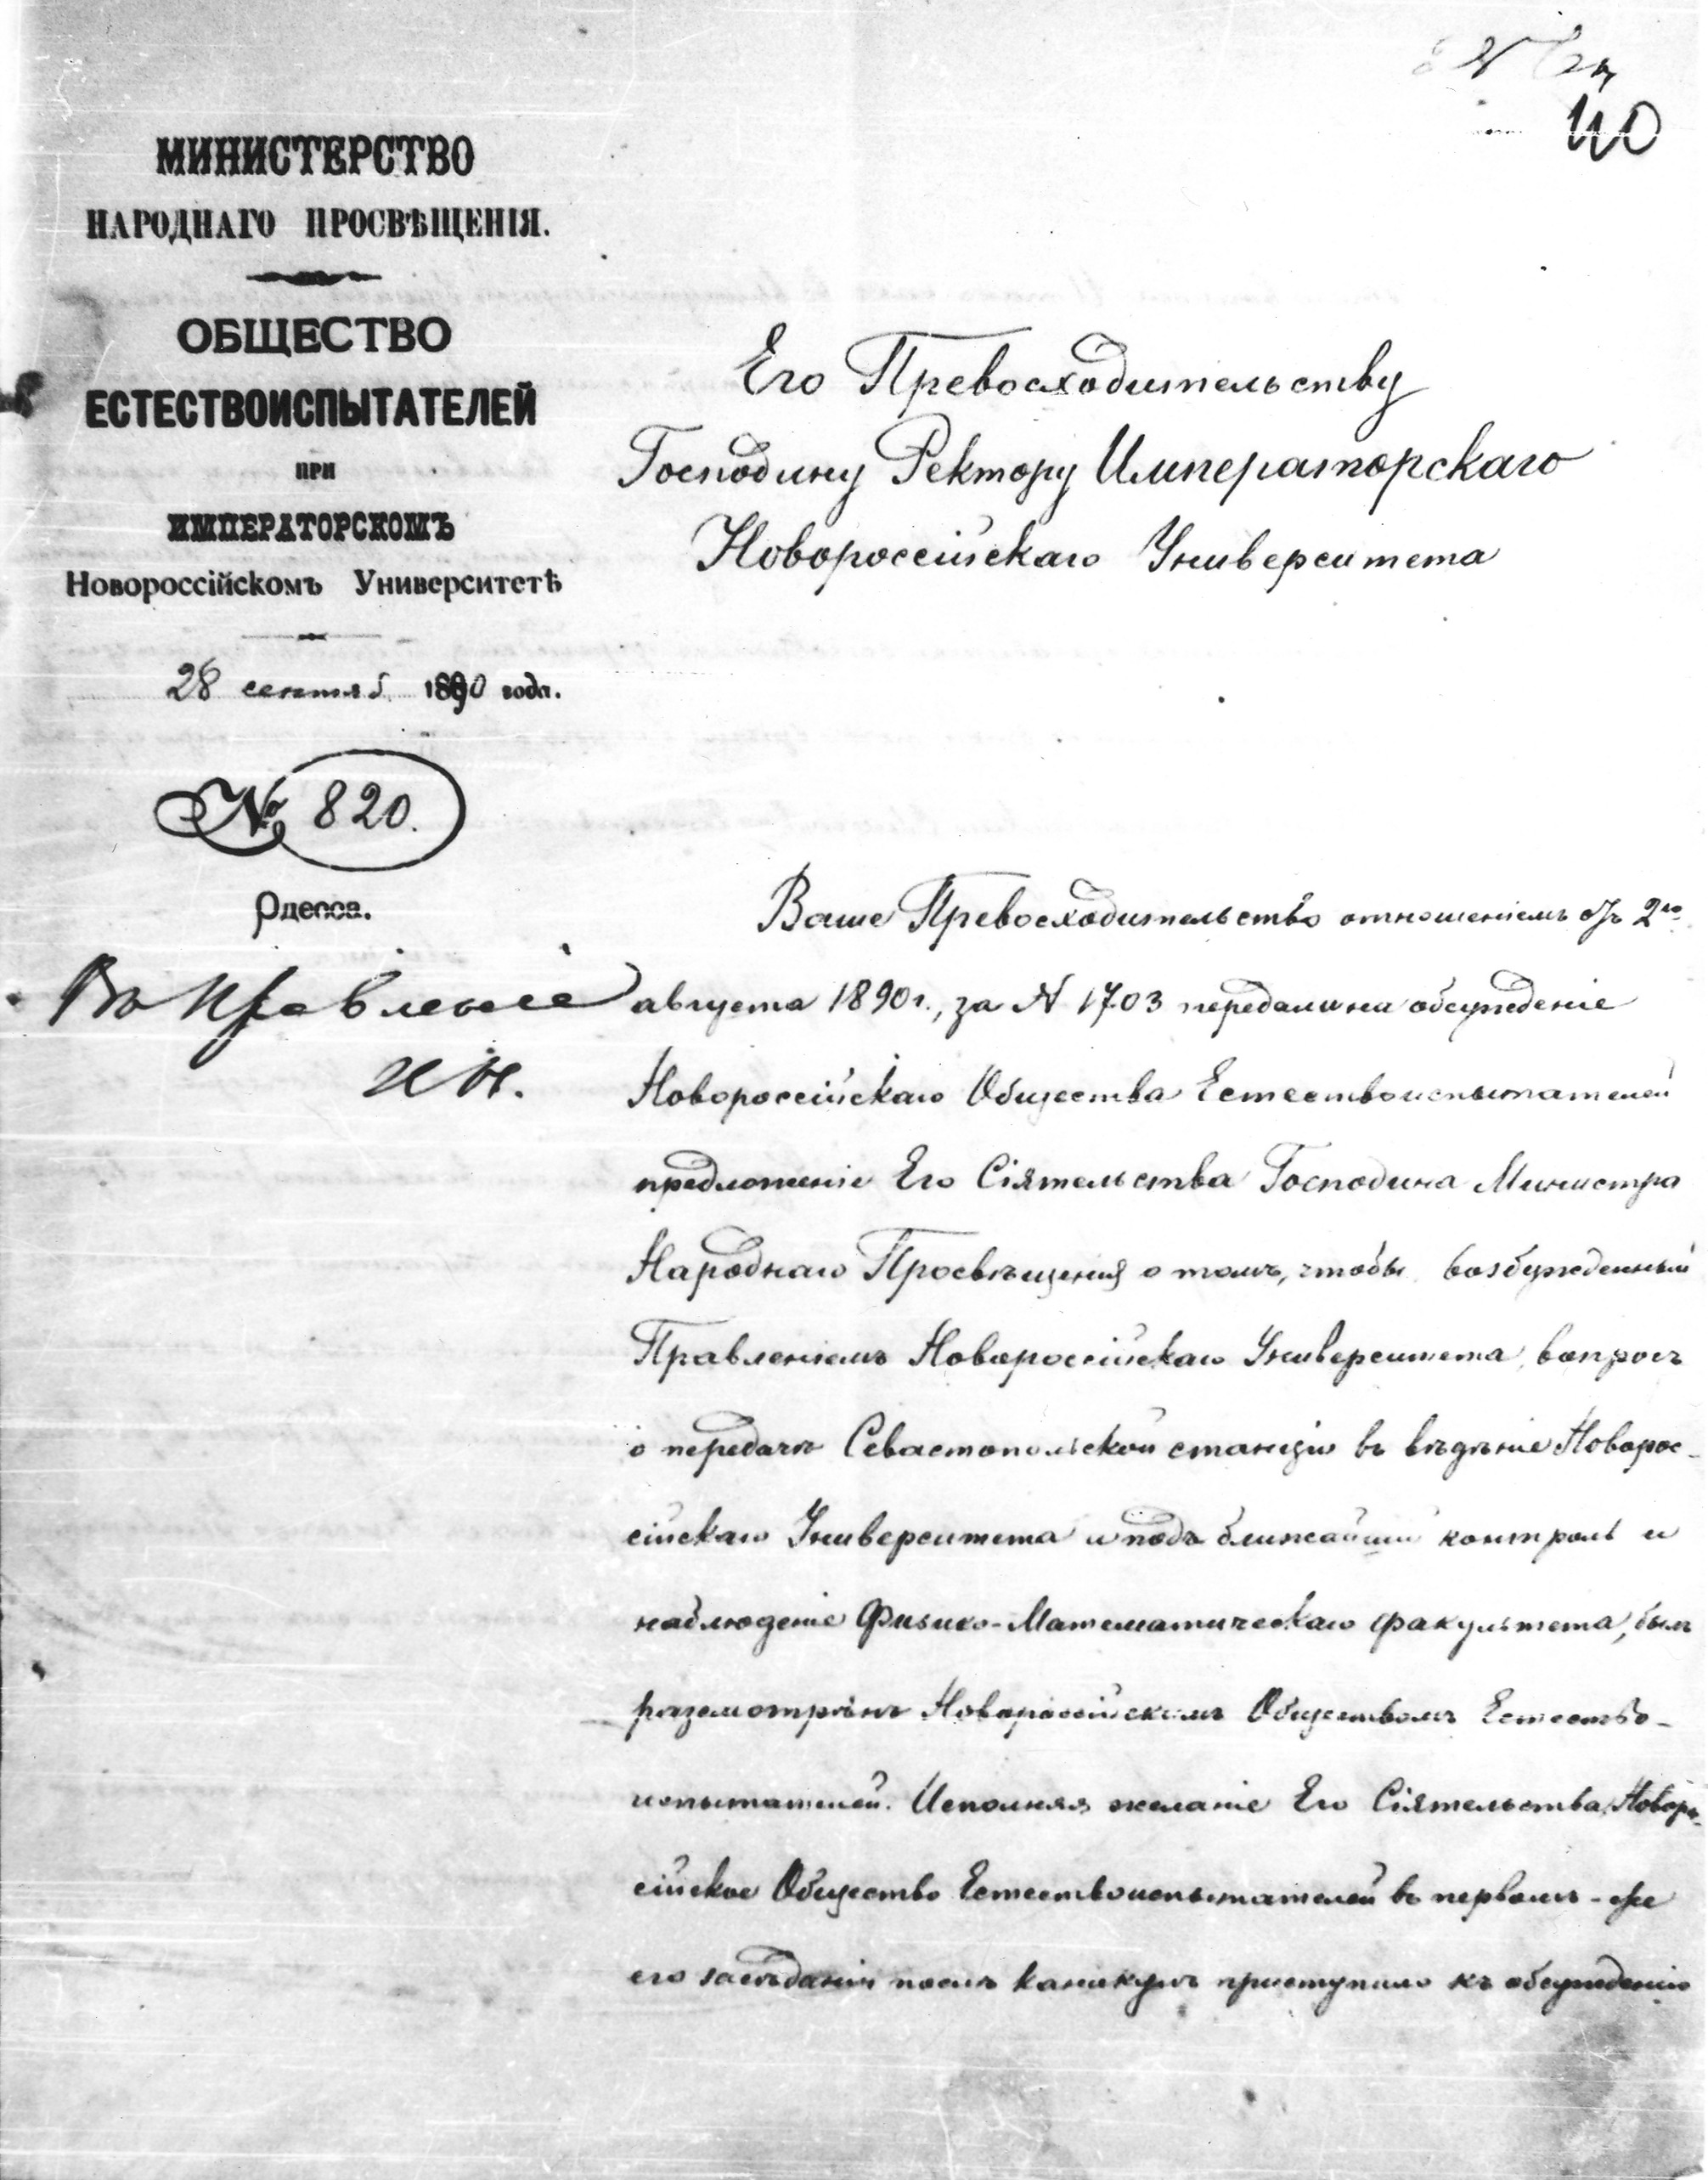 40
МИНИСТЕРСТВО
НАРОДНАГО ПРОСВѢЩЕНІЯ.
ОБЩЕСТВО
ЕСТЕСТВОИСПЫТАТЕЛЕЙ
ПРИ
ИМПЕРАТОРСКОМЪ
Новороссійскомъ Университетѣ
28 сентяб. 1890 года.
№ 820.
Одесса.
Въ Правленіе
Его Превосходительству
Господину Ректору Императорскаго
Новороссійскаго Университета
Ваше Превосходительство отношеніемъ отъ 2го
августа 1890 г., за N 1703 передали на обсужденіе
Новороссійскаго Общества Естествоиспытателей
предложеніе Его Сіятельства Господина Министра
Народнаго Просвѣщенія о томъ, чтобы возбужденный
Правленіемъ Новороссійскаго Университета вопросъ
о передачѣ Севастопольской станціи въ вѣдѣніе Новорос-
сійскаго Университета и подъ ближайшій контроль и
наблюденіе Физико-Математическаго факультета, былъ
разсмотрѣнъ Новороссійскимъ Обществомъ Естество-
испытателей. Исполняя желаніе Его Сіятельства, Новорос-
сійское Общество Естествоиспытателей въ первомъ-же
его засѣданіи послѣ каникулъ приступило къ обсужденію